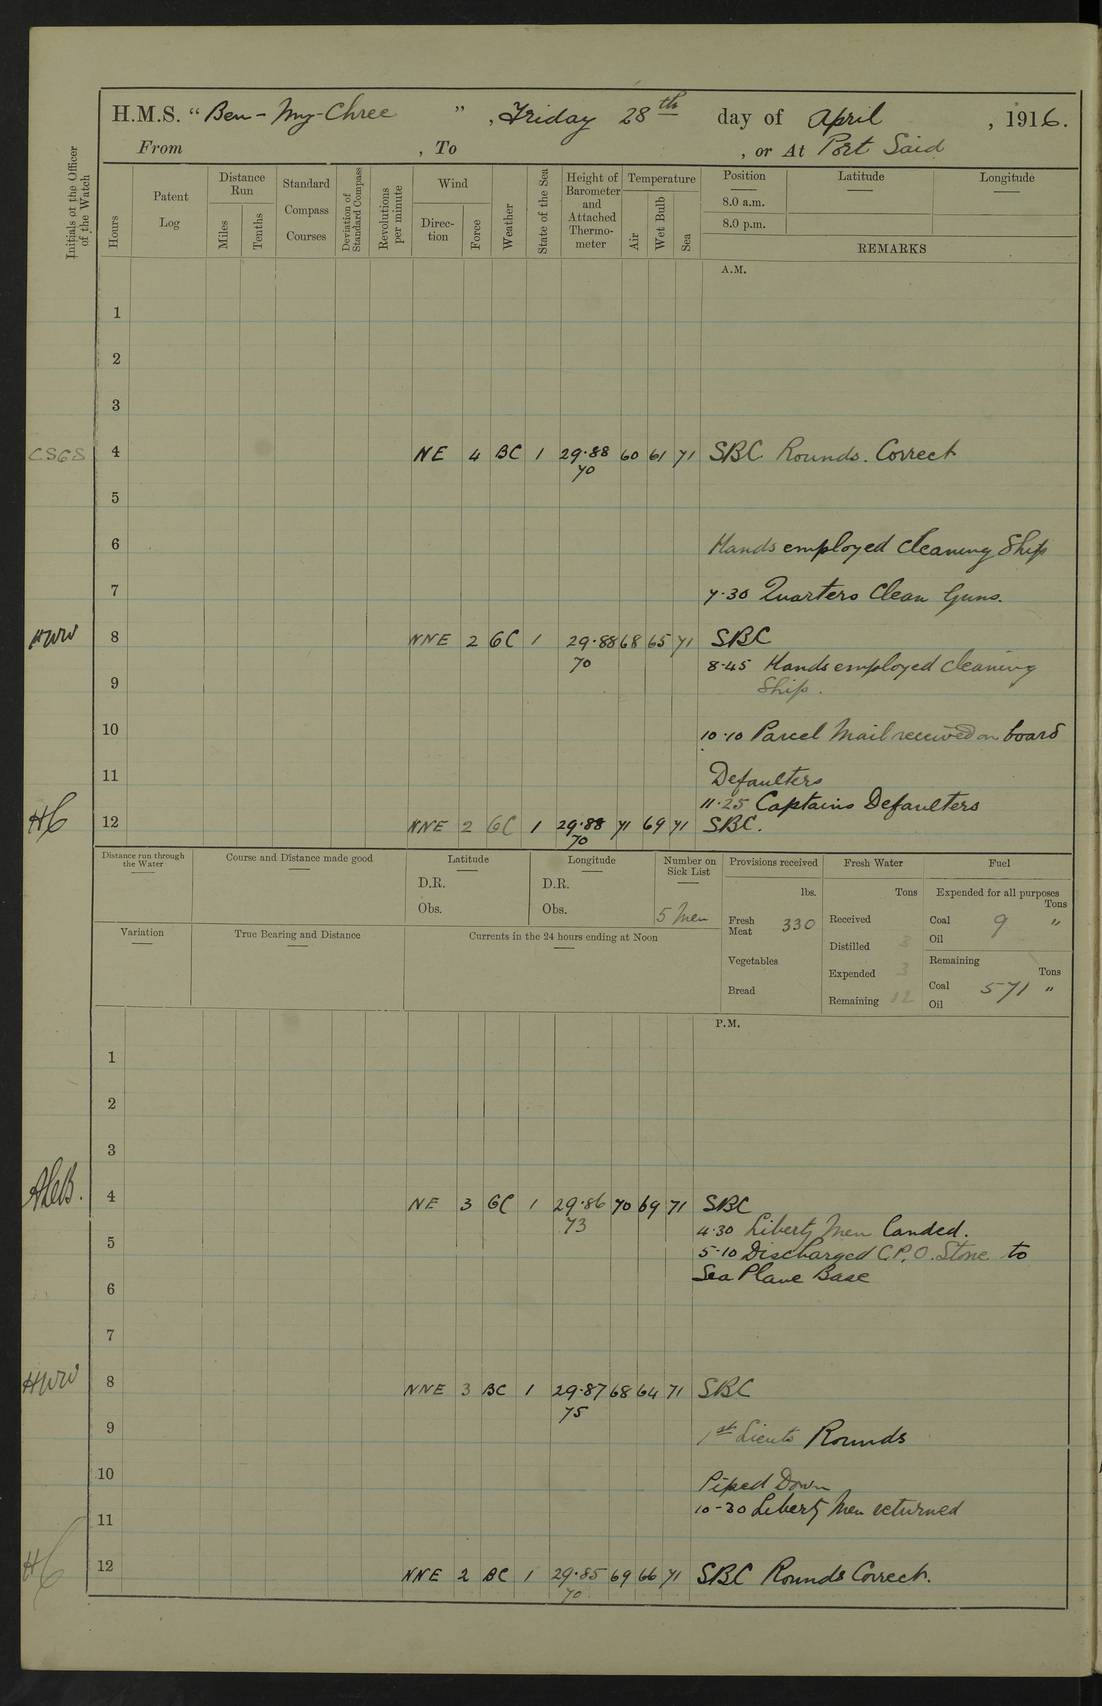 H.M.S. “Ben-My-Chree”, Friday 28th day of April, 1916.
From , To , or At Port Said
Initials of the Officer of the Watch
Hours
Patent Log
Distance Run
Miles
Tenths
Standard Compass Courses
Deviation of Standard Compass
Revolutions per minute
Wind
Direction
Force
Weather
State of the Sea
Height of Barometer and Attached Thermometer
Temperature
Air
Wet Bulb
Sea
Position
8.0 a.m.
8.0 p.m.
Latitude
Longitude
REMARKS
A.M.
1
2
3
CSGS 4 NE 4 BC 1 29.88 60 61 71 SBC Rounds. Correct
70
5
6 Hands employed cleaning Ship
7 7.30 Quarters Clean Guns.
HWW 8 NNE 2 GC 1 29.88 68 65 71 SBC
70 8.45 Hands employed cleaning
9 Ship.
10 10.10 Parcel Mail received on board
11 Defaulters
11.25 Captains Defaulters
HC 12 NNE 2 GC 1 29.88 71 69 71 SBC.
70
Distance run through the Water
Course and Distance made good
Latitude
D.R.
Obs.
Longitude
D.R.
Obs.
Number on Sick List
5 Men
Provisions received
lbs.
Fresh Meat 330
Vegetables
Bread
Fresh Water
Tons
Received
Distilled 3
Expended 3
Remaining 12
Fuel
Expended for all purposes
Tons
Coal 9 "
Oil
Remaining
Tons
Coal 571 "
Oil
Variation
True Bearing and Distance
Currents in the 24 hours ending at Noon
P.M.
1
2
3
4 NE 3 GC 1 29.86 70 69 71 SBC
73 4.30 Liberty Men landed.
5 5-10 Discharged C.P.O. Stone to
Sea Plane Base
6
7
HWW 8 NNE 3 BC 1 29.87 68 64 71 SBC
75
9 1st Lieuts Rounds
10 Piped Down
10-30 Liberty Men returned
11
HC 12 NNE 2 BC 1 29.85 69 66 71 SBC Rounds Correct.
70